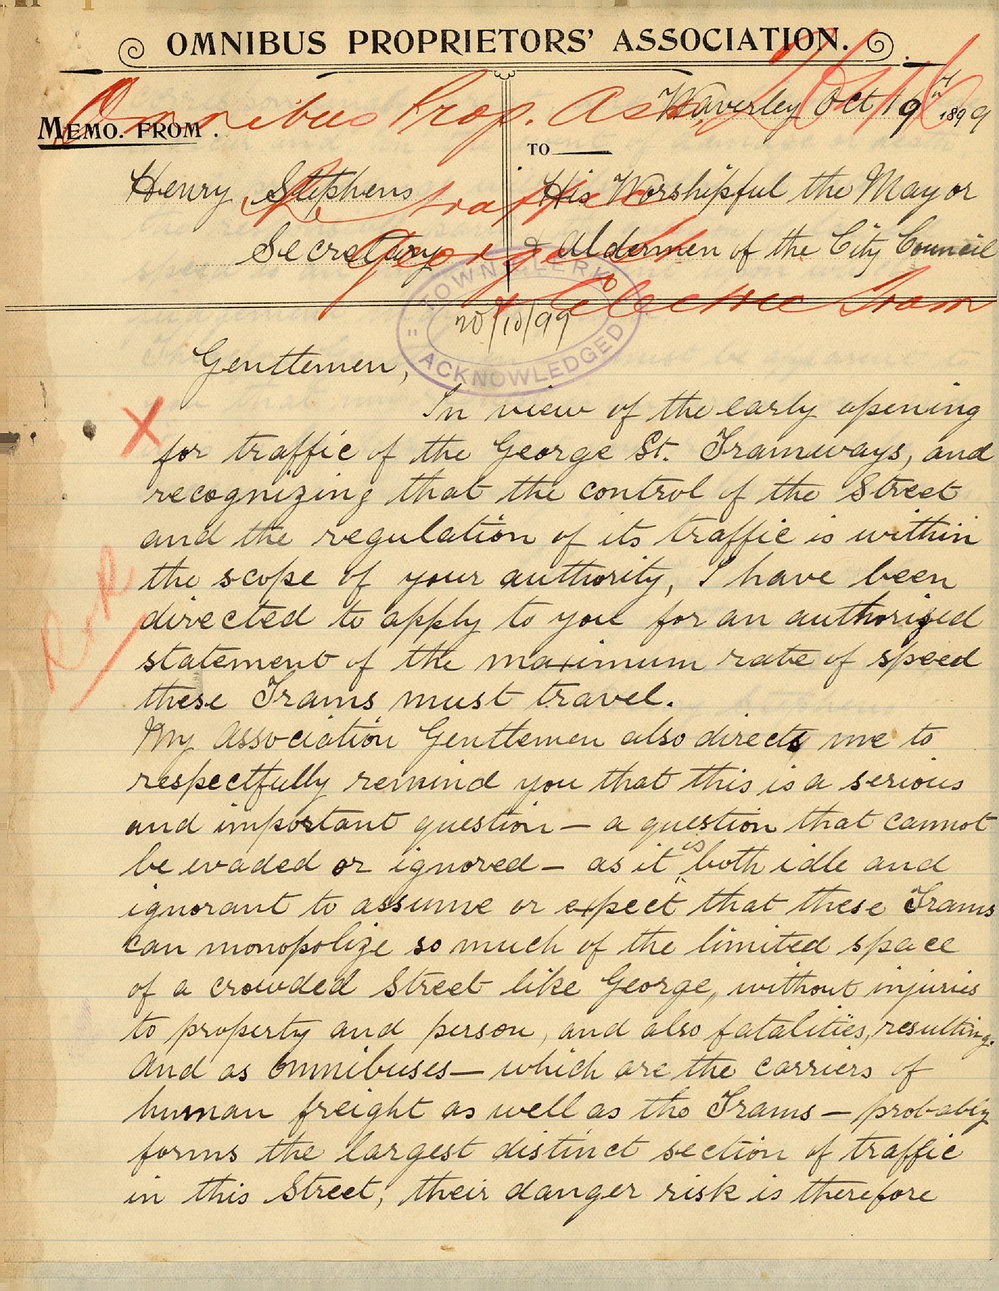 OMNIBUS PROPRIETORS' ASSOCIATION.
Omnibus Prop. Assn
Waverley Oct 19th 1899
MEMO. FROM.
TO
Henry Stephens
Secretary
His Worshipful the Mayor
& Aldermen of the City Council
Re traffic
George St
& Electric Tram
TOWN CLERK
20/10/99
ACKNOWLEDGED
Gentlemen,
In view of the early opening
X
for traffic of the George St. Tramways, and
recognizing that the control of the Street
and the regulation of its traffic is within
the scope of your authority, I have been
directed to apply to you for an authorized
statement of the maximum rate of speed
these Trams must travel.
My Association Gentlemen also directs me to
respectfully remind you that this is a serious
and important question – a question that cannot
be evaded or ignored – as it is both idle and
ignorant to assume or expect that these Trams
can monopolize so much of the limited space
of a crowded Street like George, without injuries
to property and person, and also fatalities, resulting.
And as Omnibuses – which are the carriers of
human freight as well as the Trams – probably
forms the largest distinct section of traffic
in this Street, their danger risk is therefore